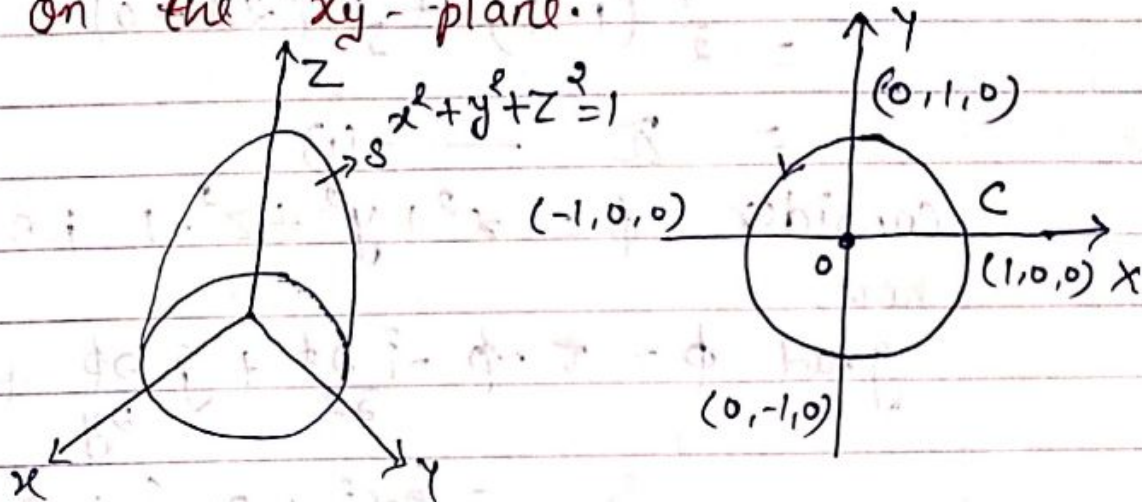 on the xy-plane.
Z
x²+y²+z²=1
S
x
y
Y
(0,1,0)
(-1,0,0)
C
0
(1,0,0) X
(0,-1,0)